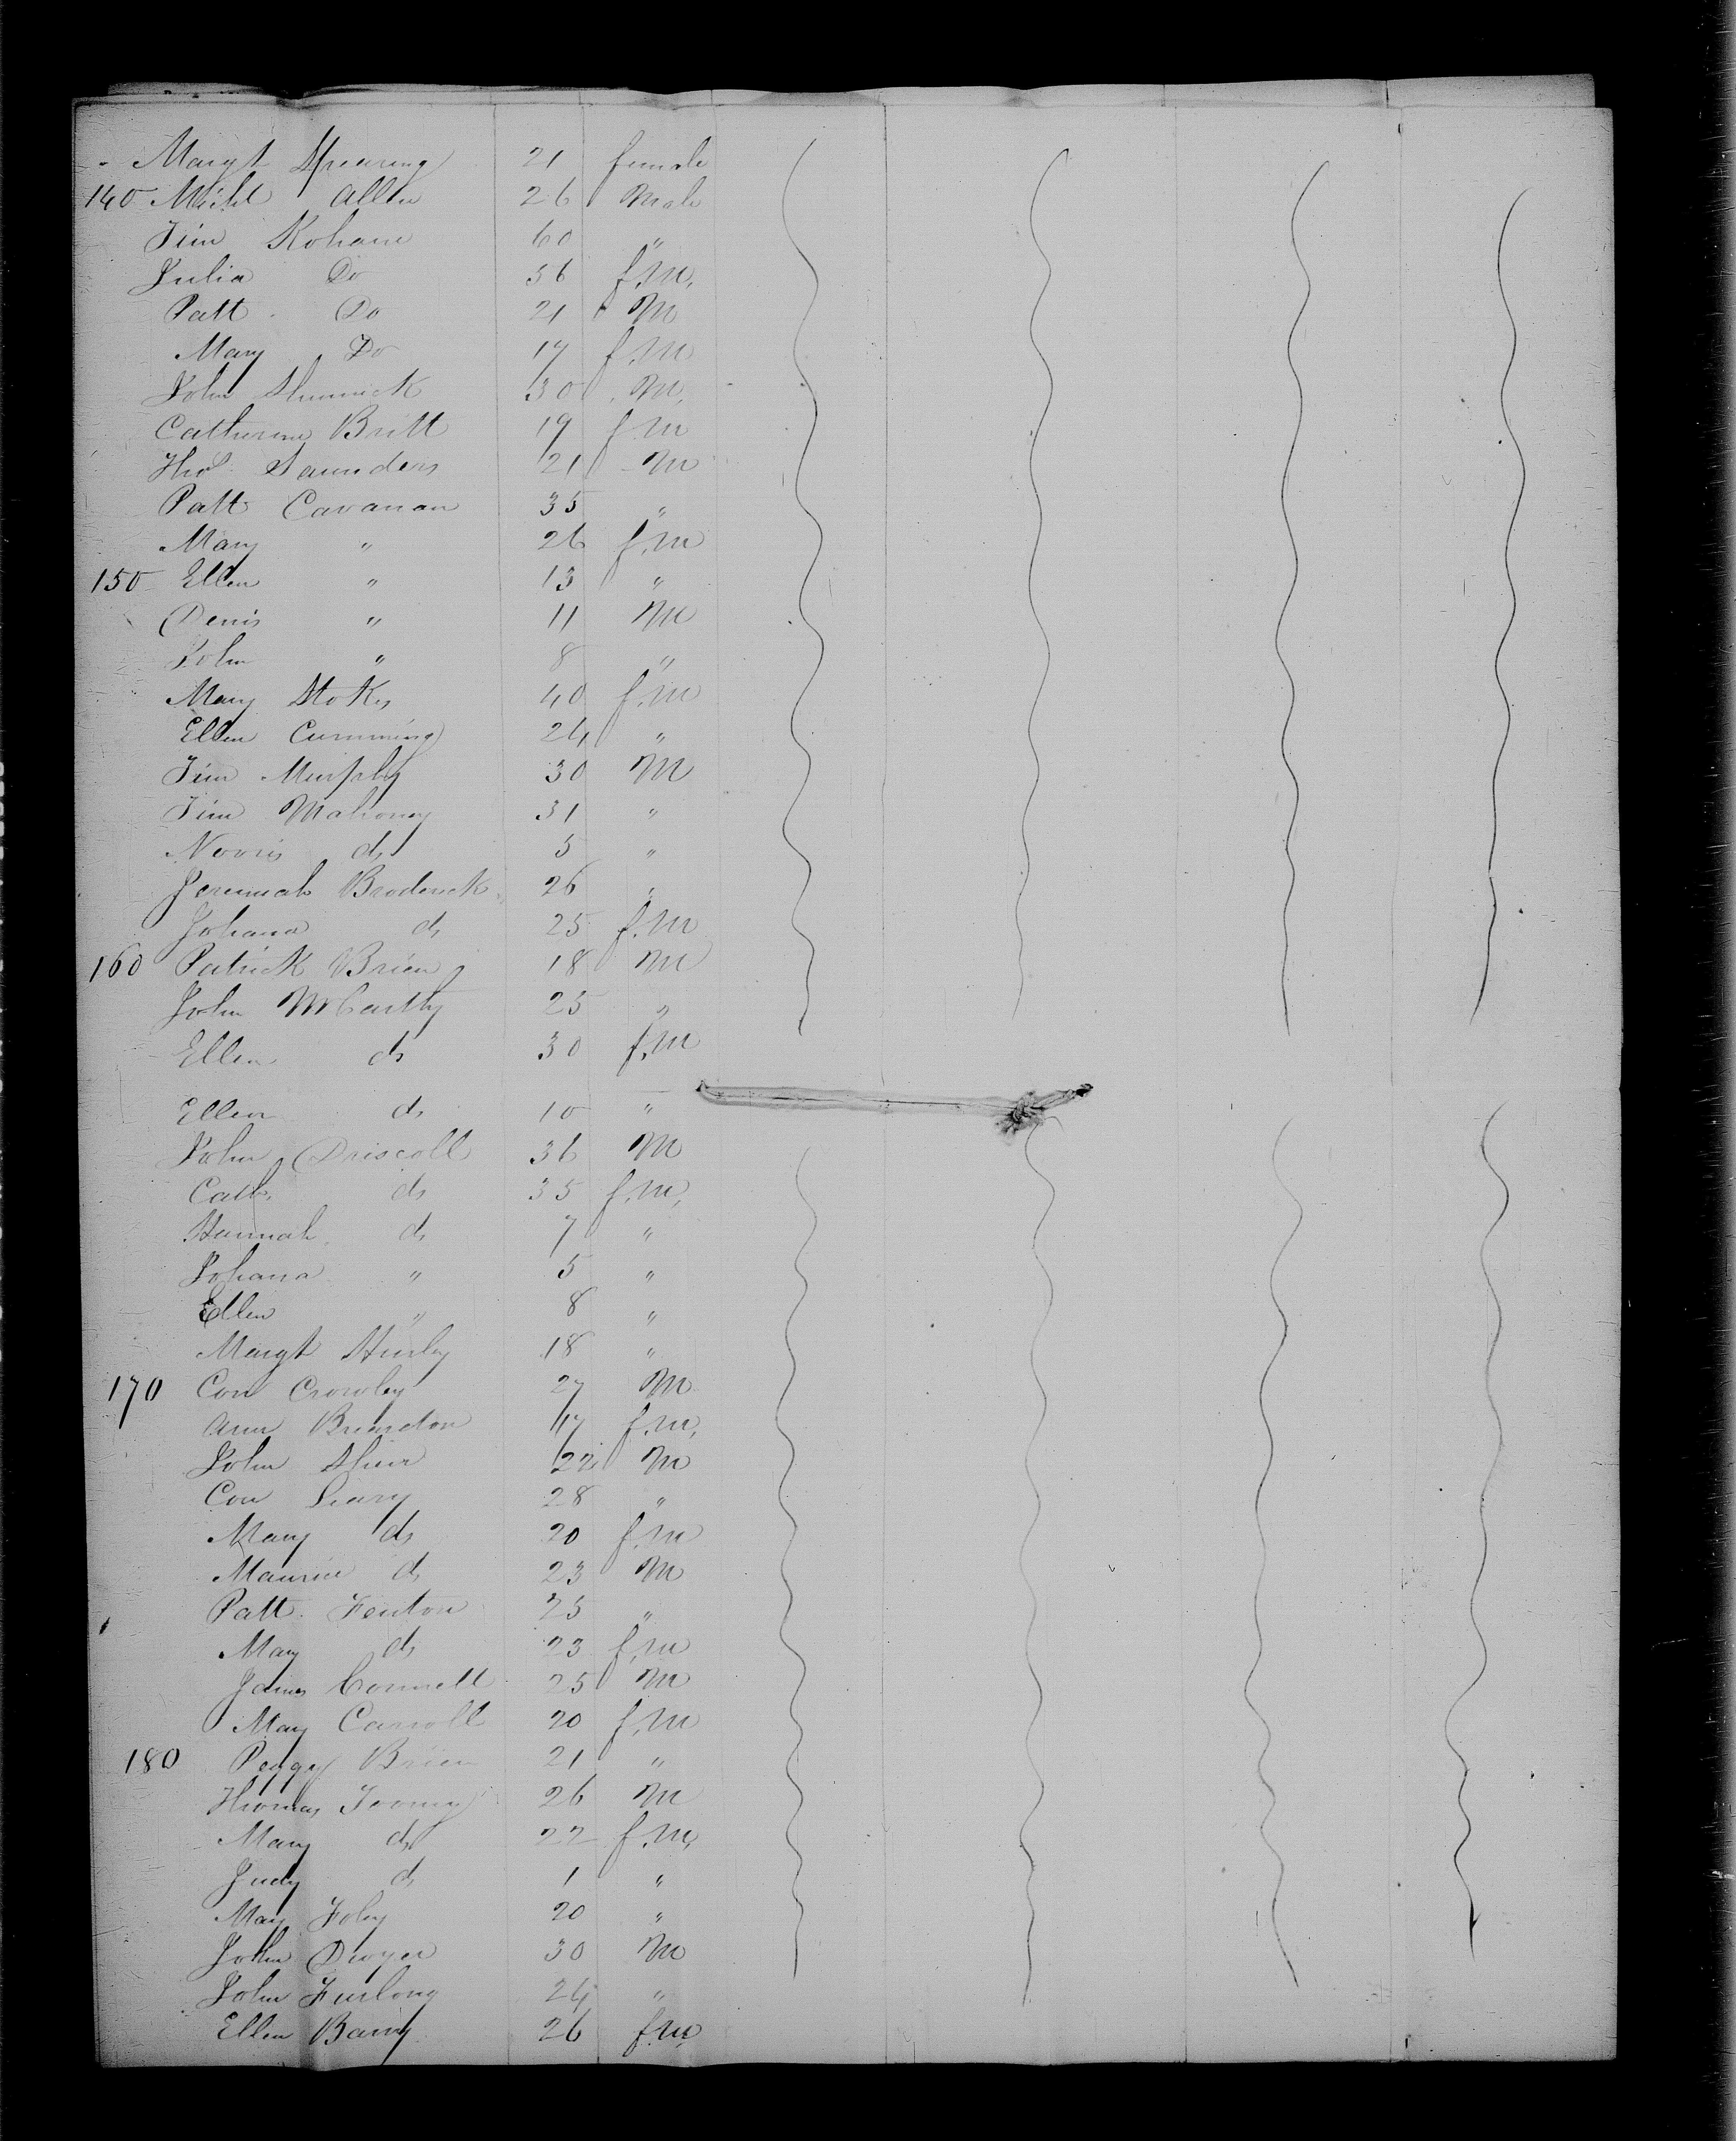 - Margt Spearing 21 female
140 Michl Allen 26 Male
Tim Kohane 60 "
Julia Do 56 f.m.
Patt Do 21 M
Mary Do 17 f.m
John Shinnick 30 M.
Catherine Britt 19 f.m
Thos Saunders 21 M
Patt Cavanan 35 "
Mary " 26 f.m
150 Ellen " 13 "
Denis " 11 M
John " 8 "
Mary Stokes 40 f.m
Ellen Cumming 24 "
Tim Murphy 30 M
Tim Mahoney 31 "
Norris do 5 "
Jeremiah Broderick 26 "
Johana do 25 f.m
160 Patrick Brien 18 M
John McCarthy 25 "
Ellen do 30 f.m
Ellen do 10 "
John Driscoll 36 M
Cath. do 35 f.m,
Hannah do 7 "
Johana " 5 "
Ellen " 8 "
Margt Hurley 18 "
170 Con Crowley 27 M
Ann 17 f.m,
John Shea 22 M
Con Leary 28 "
Mary do 20 f.m
Maurice do 23 M
Patt. Fenton 25 "
Mary do 23 f.m
James Connell 25 M
Mary Carroll 20 f.m
180 Peggy Brien 21 "
Thomas Toomy 26 M
Mary do 22 f.m,
Judy do 1 "
Mary Foley 20 "
John Dwyer 30 M
John Furlong 24 "
Ellen Barry 26 f.m